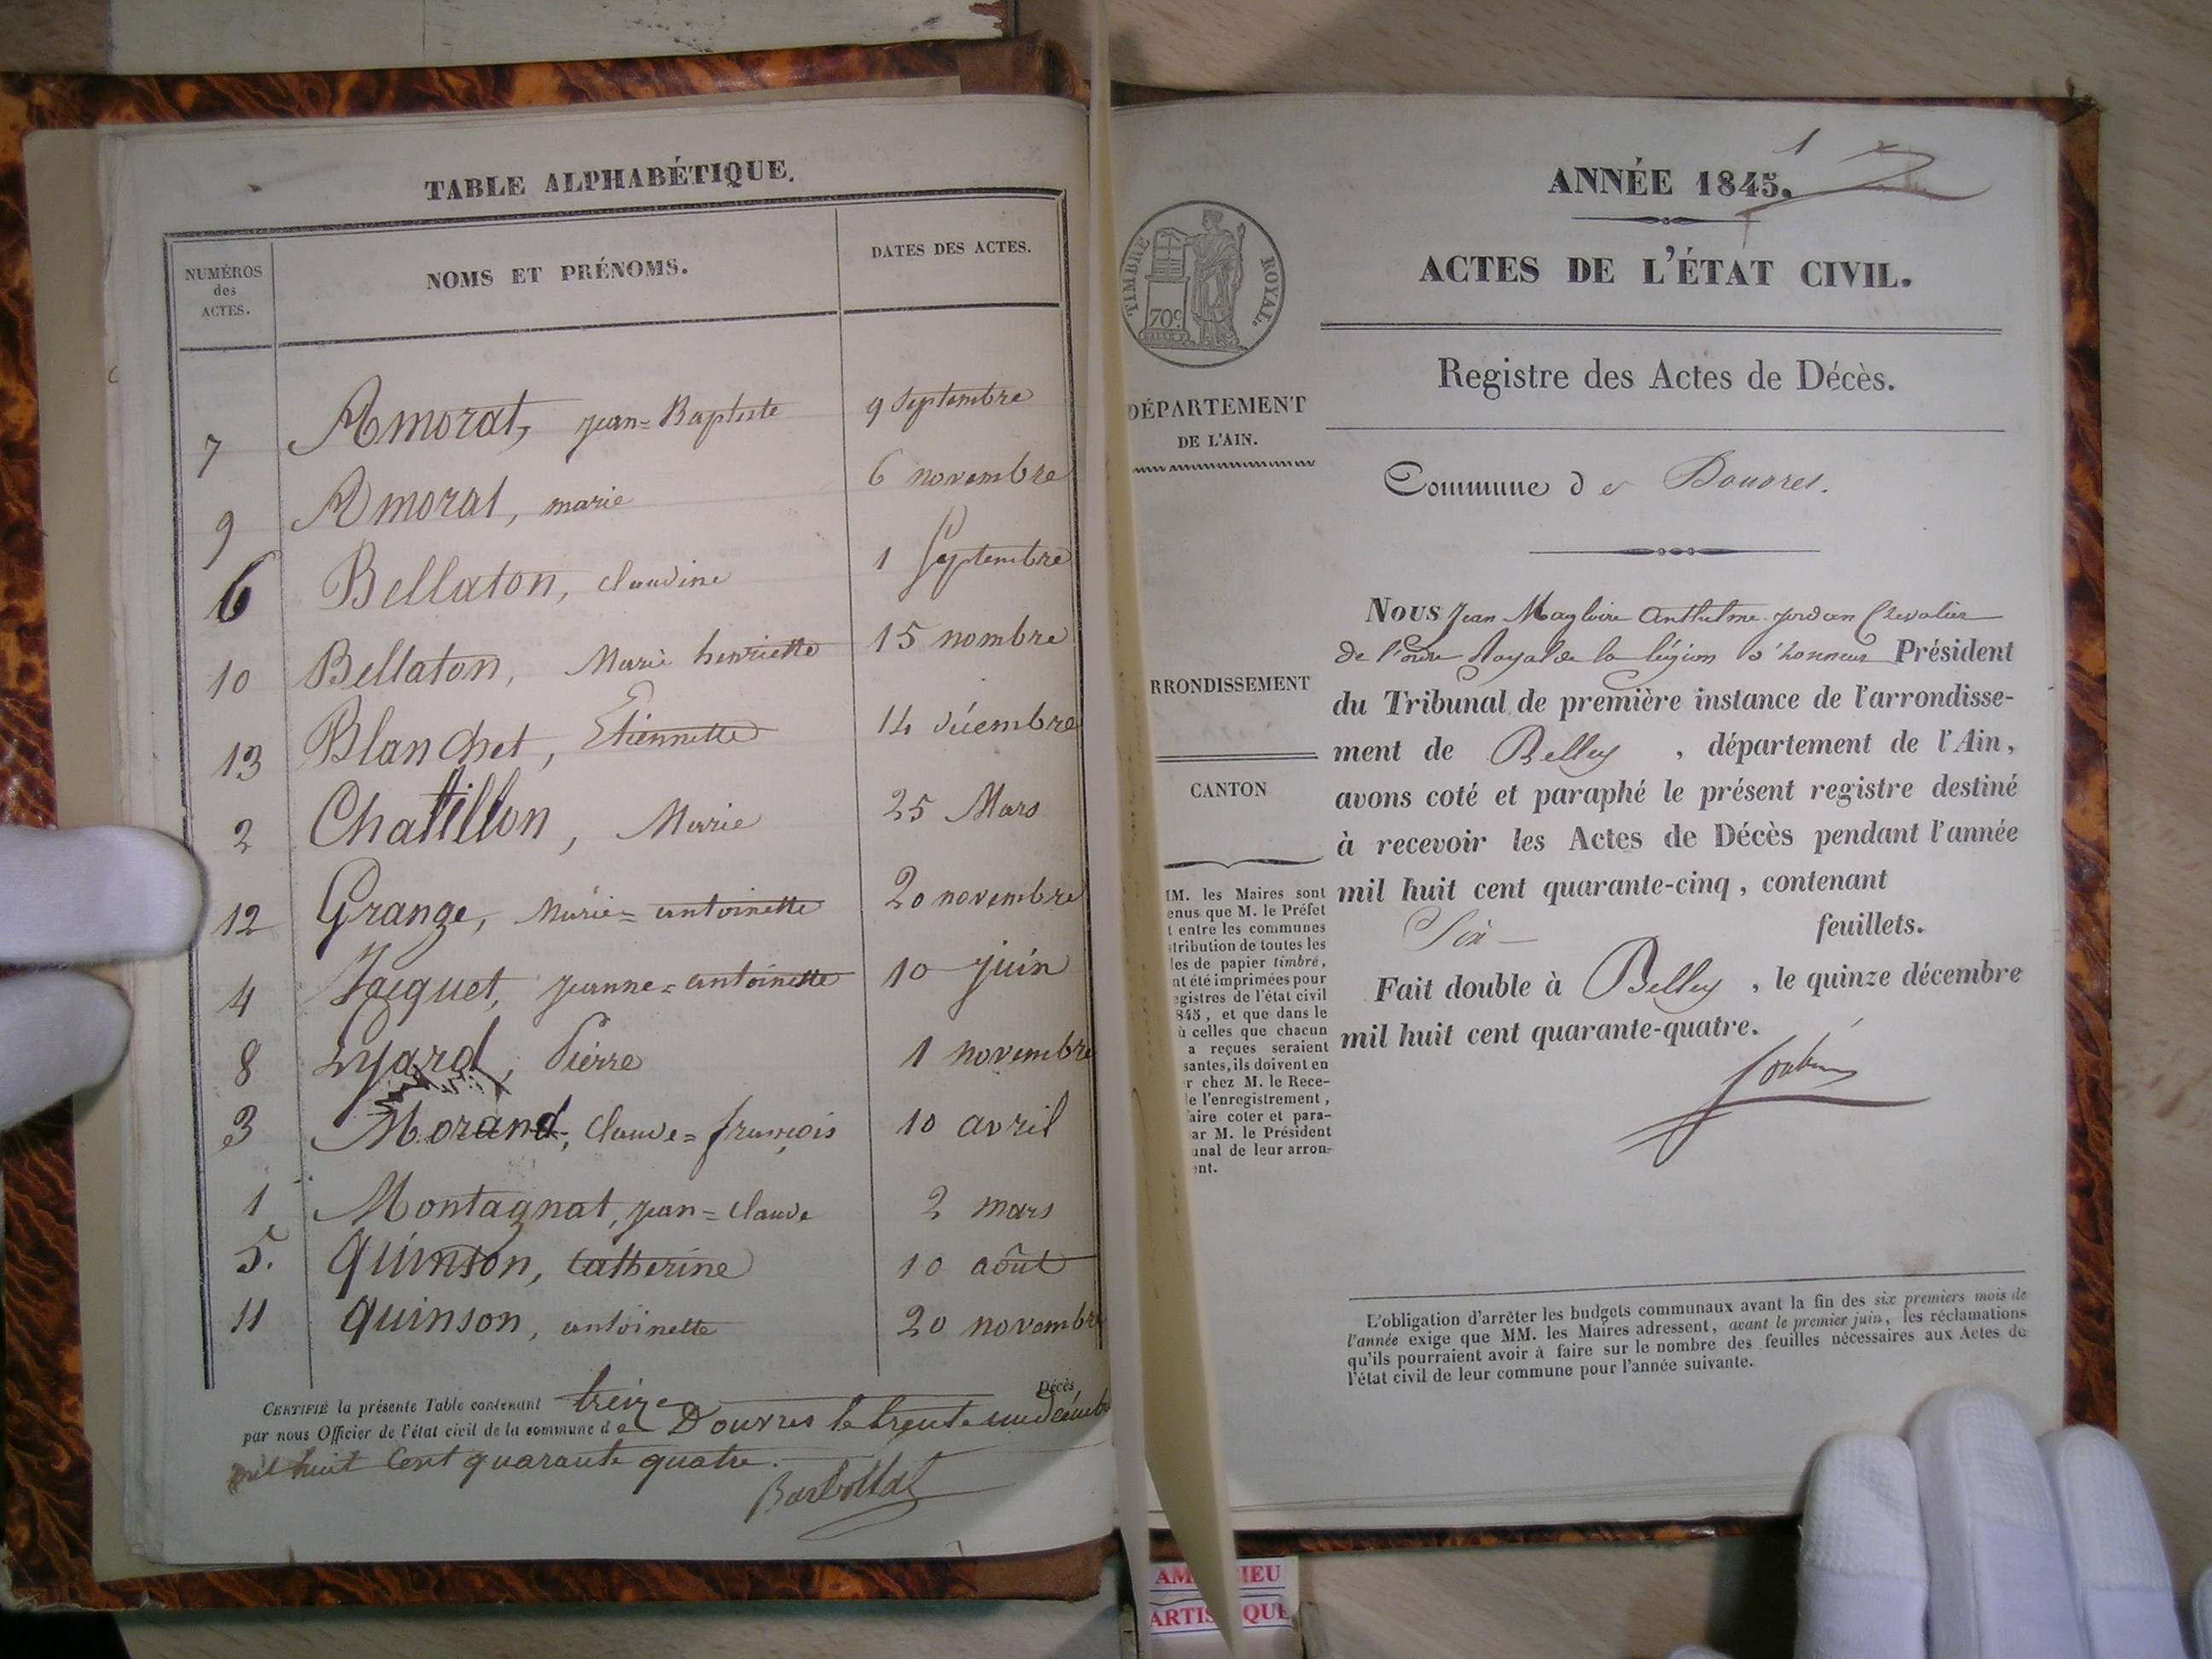 TABLE ALPHABÉTIQUE.
NUMÉROS
des
ACTES.
NOMS ET PRÉNOMS.
DATES DES ACTES.
7 Amorat, jean=Baptiste 9 Septembre
9 Amorat, marie 6 novembre
6 Bellaton, claudine 1 Septembre
10 Bellaton, Marie henriette 15 nombre
13 Blanchet, Etiennette 14 décembre
2 Chatillon, Marie 25 Mars
12 Grange, Marie=antoinette 20 novembre
4 Jacquet, jeanne=antoinette 10 juin
8 Lyard, Pierre 1 novembre
3 Morand, Claude=françois 10 avril
1 Montagnat, jean=claude 2 mars
5. Quinson, Catherine 10 août
11 Quinson, antoinette 20 novembre
CERTIFIÉ la présente Table contenant treize Décès,
par nous Officier de l'état civil de la commune de Douvres le trente un décembre
mil huit Cent quarante quatre.
Barbollat
1
ANNÉE 1845.
ACTES DE L'ÉTAT CIVIL.
TIMBRE ROYAL.
70c
Registre des Actes de Décès.
DÉPARTEMENT
DE L'AIN.
Commune de Douvres.
NOUS Jean Magloire Anthelme jordan Chevalier
de l'ordre Royal de la légion d'honneur Président
RRONDISSEMENT
du Tribunal de première instance de l'arrondisse-
ment de Belley, département de l'Ain,
CANTON
avons coté et paraphé le présent registre destiné
à recevoir les Actes de Décès pendant l'année
mil huit cent quarante-cinq, contenant
Six feuillets.
Fait double à Belley, le quinze décembre
mil huit cent quarante-quatre.
MM. les Maires sont
enus que M. le Préfet
t entre les communes
stribution de toutes les
les de papier timbré,
nt été imprimées pour
egistres de l'état civil
845, et que dans le
ù celles que chacun
a reçues seraient
santes, ils doivent en
r chez M. le Rece-
e l'enregistrement,
aire coter et para-
ar M. le Président
unal de leur arron-
ent.
L'obligation d'arrêter les budgets communaux avant la fin des six premiers mois de
l'année exige que MM. les Maires adressent, avant le premier juin, les réclamations
qu'ils pourraient avoir à faire sur le nombre des feuilles nécessaires aux Actes de
l'état civil de leur commune pour l'année suivante.
AM IEU
ARTIS QUE